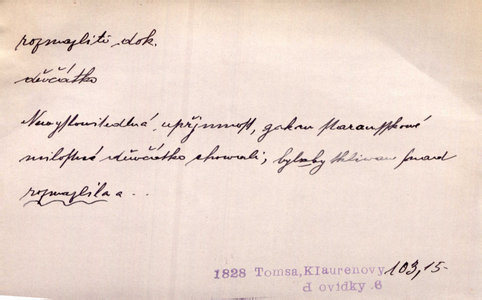 rozmazliti dok.
děvčátko
Newyslowitedlná upřjmnost, gakau Starausskowé
milostné děvčátko chowali; bylaby
rozmazlila a ..
1828 Tomsa, Klaurenovy 103,15-
d ovidky 6